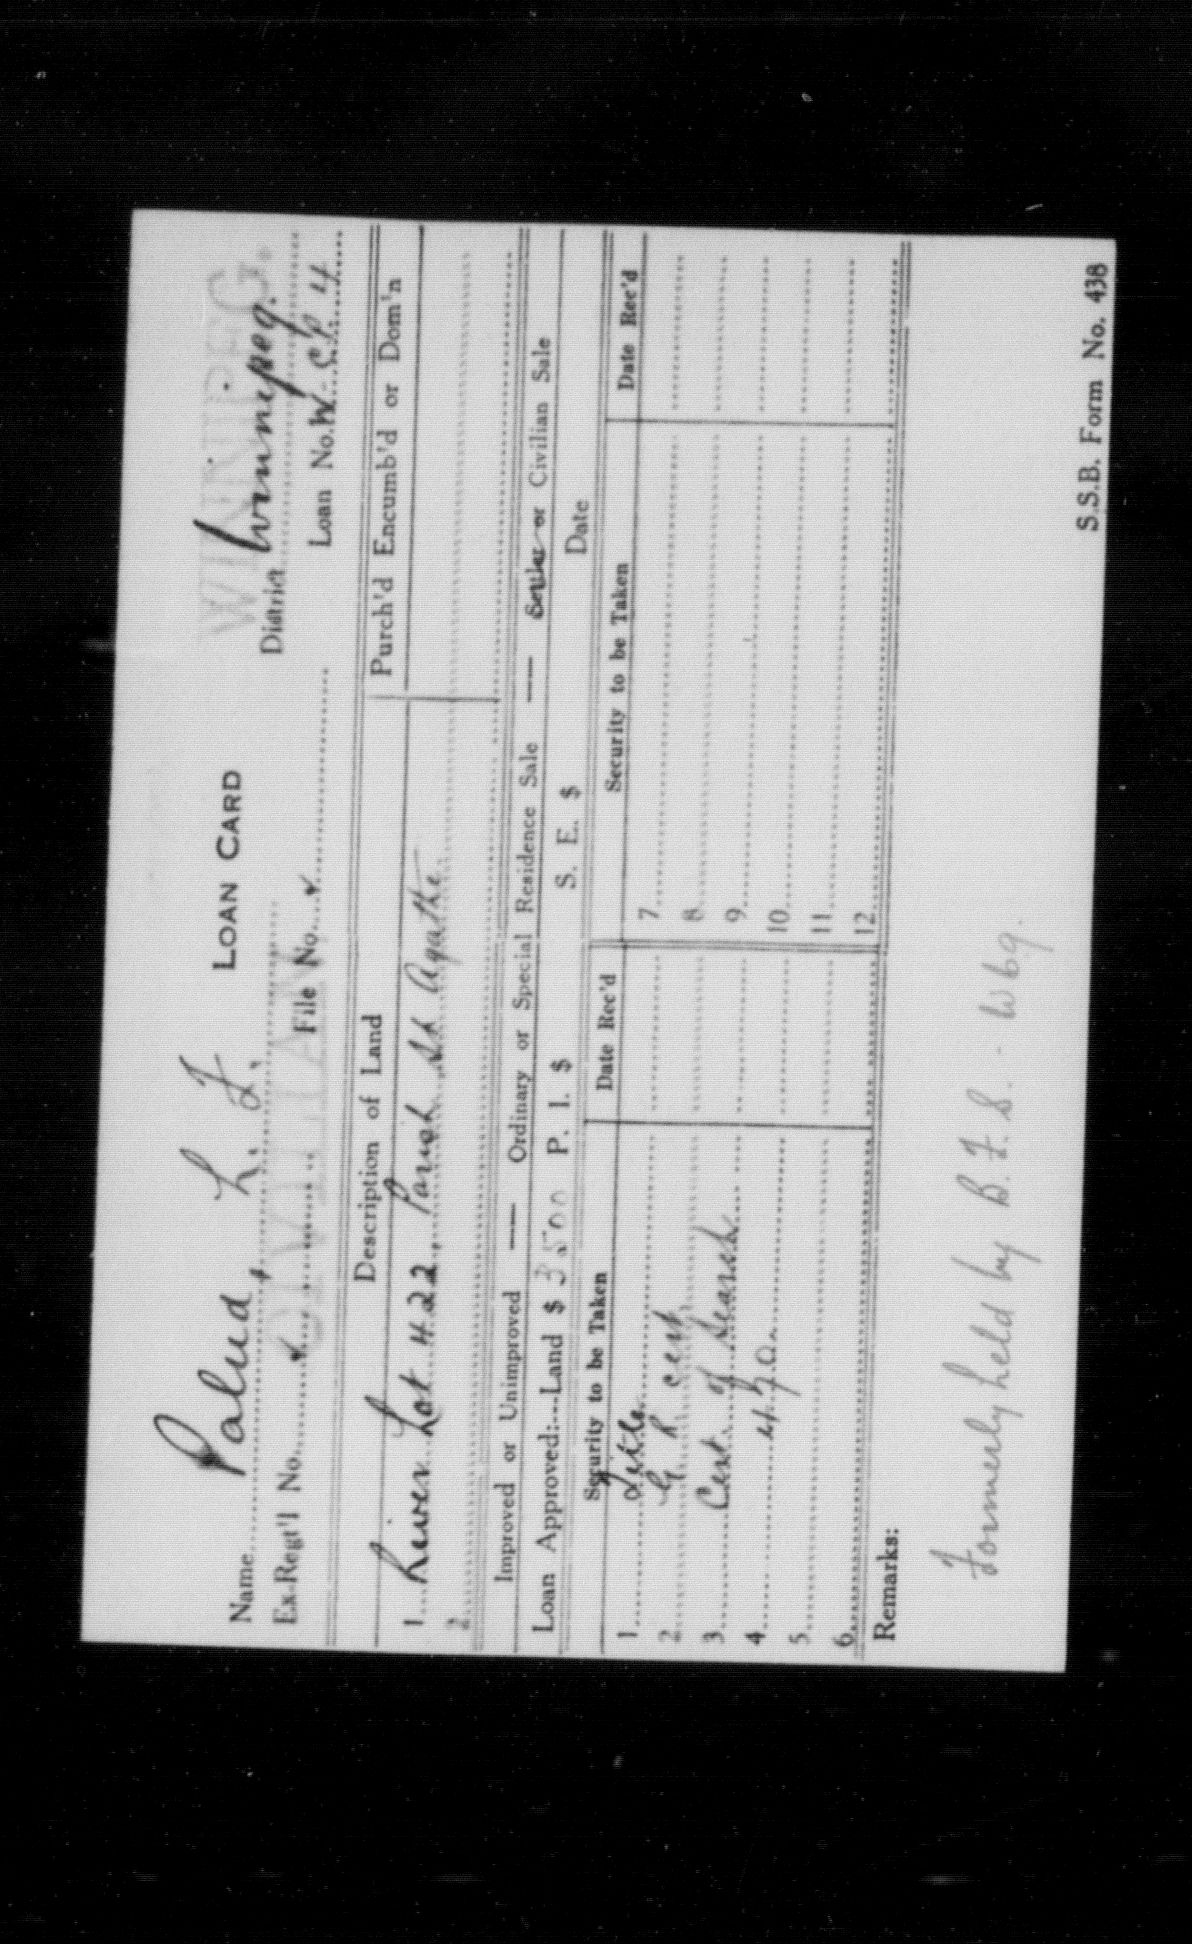 LOAN CARD
WINNIPEG.
Name Palud, L. J. District Winnipeg.
CIVILIAN
Ex-Regt'l No. ✓ File No. ✓ Loan No. W
Description of Land Purch'd Encumb'd or Dom'n
1 River Lot 422, Parish St Agathe
2
Improved or Unimproved — Ordinary or Special Residence Sale — Settler or Civilian Sale
Loan Approved:—Land $ 3500 P. I. $ S. E. $ Date
Security to be Taken Date Rec'd Security to be Taken Date Rec'd
1 Title 7
2 G R cert 8
3 Cert. of Search 9
4 10
5 11
6 12
Remarks:
Formerly held by B. F. S. - Wpg.
S.S.B. Form No. 438